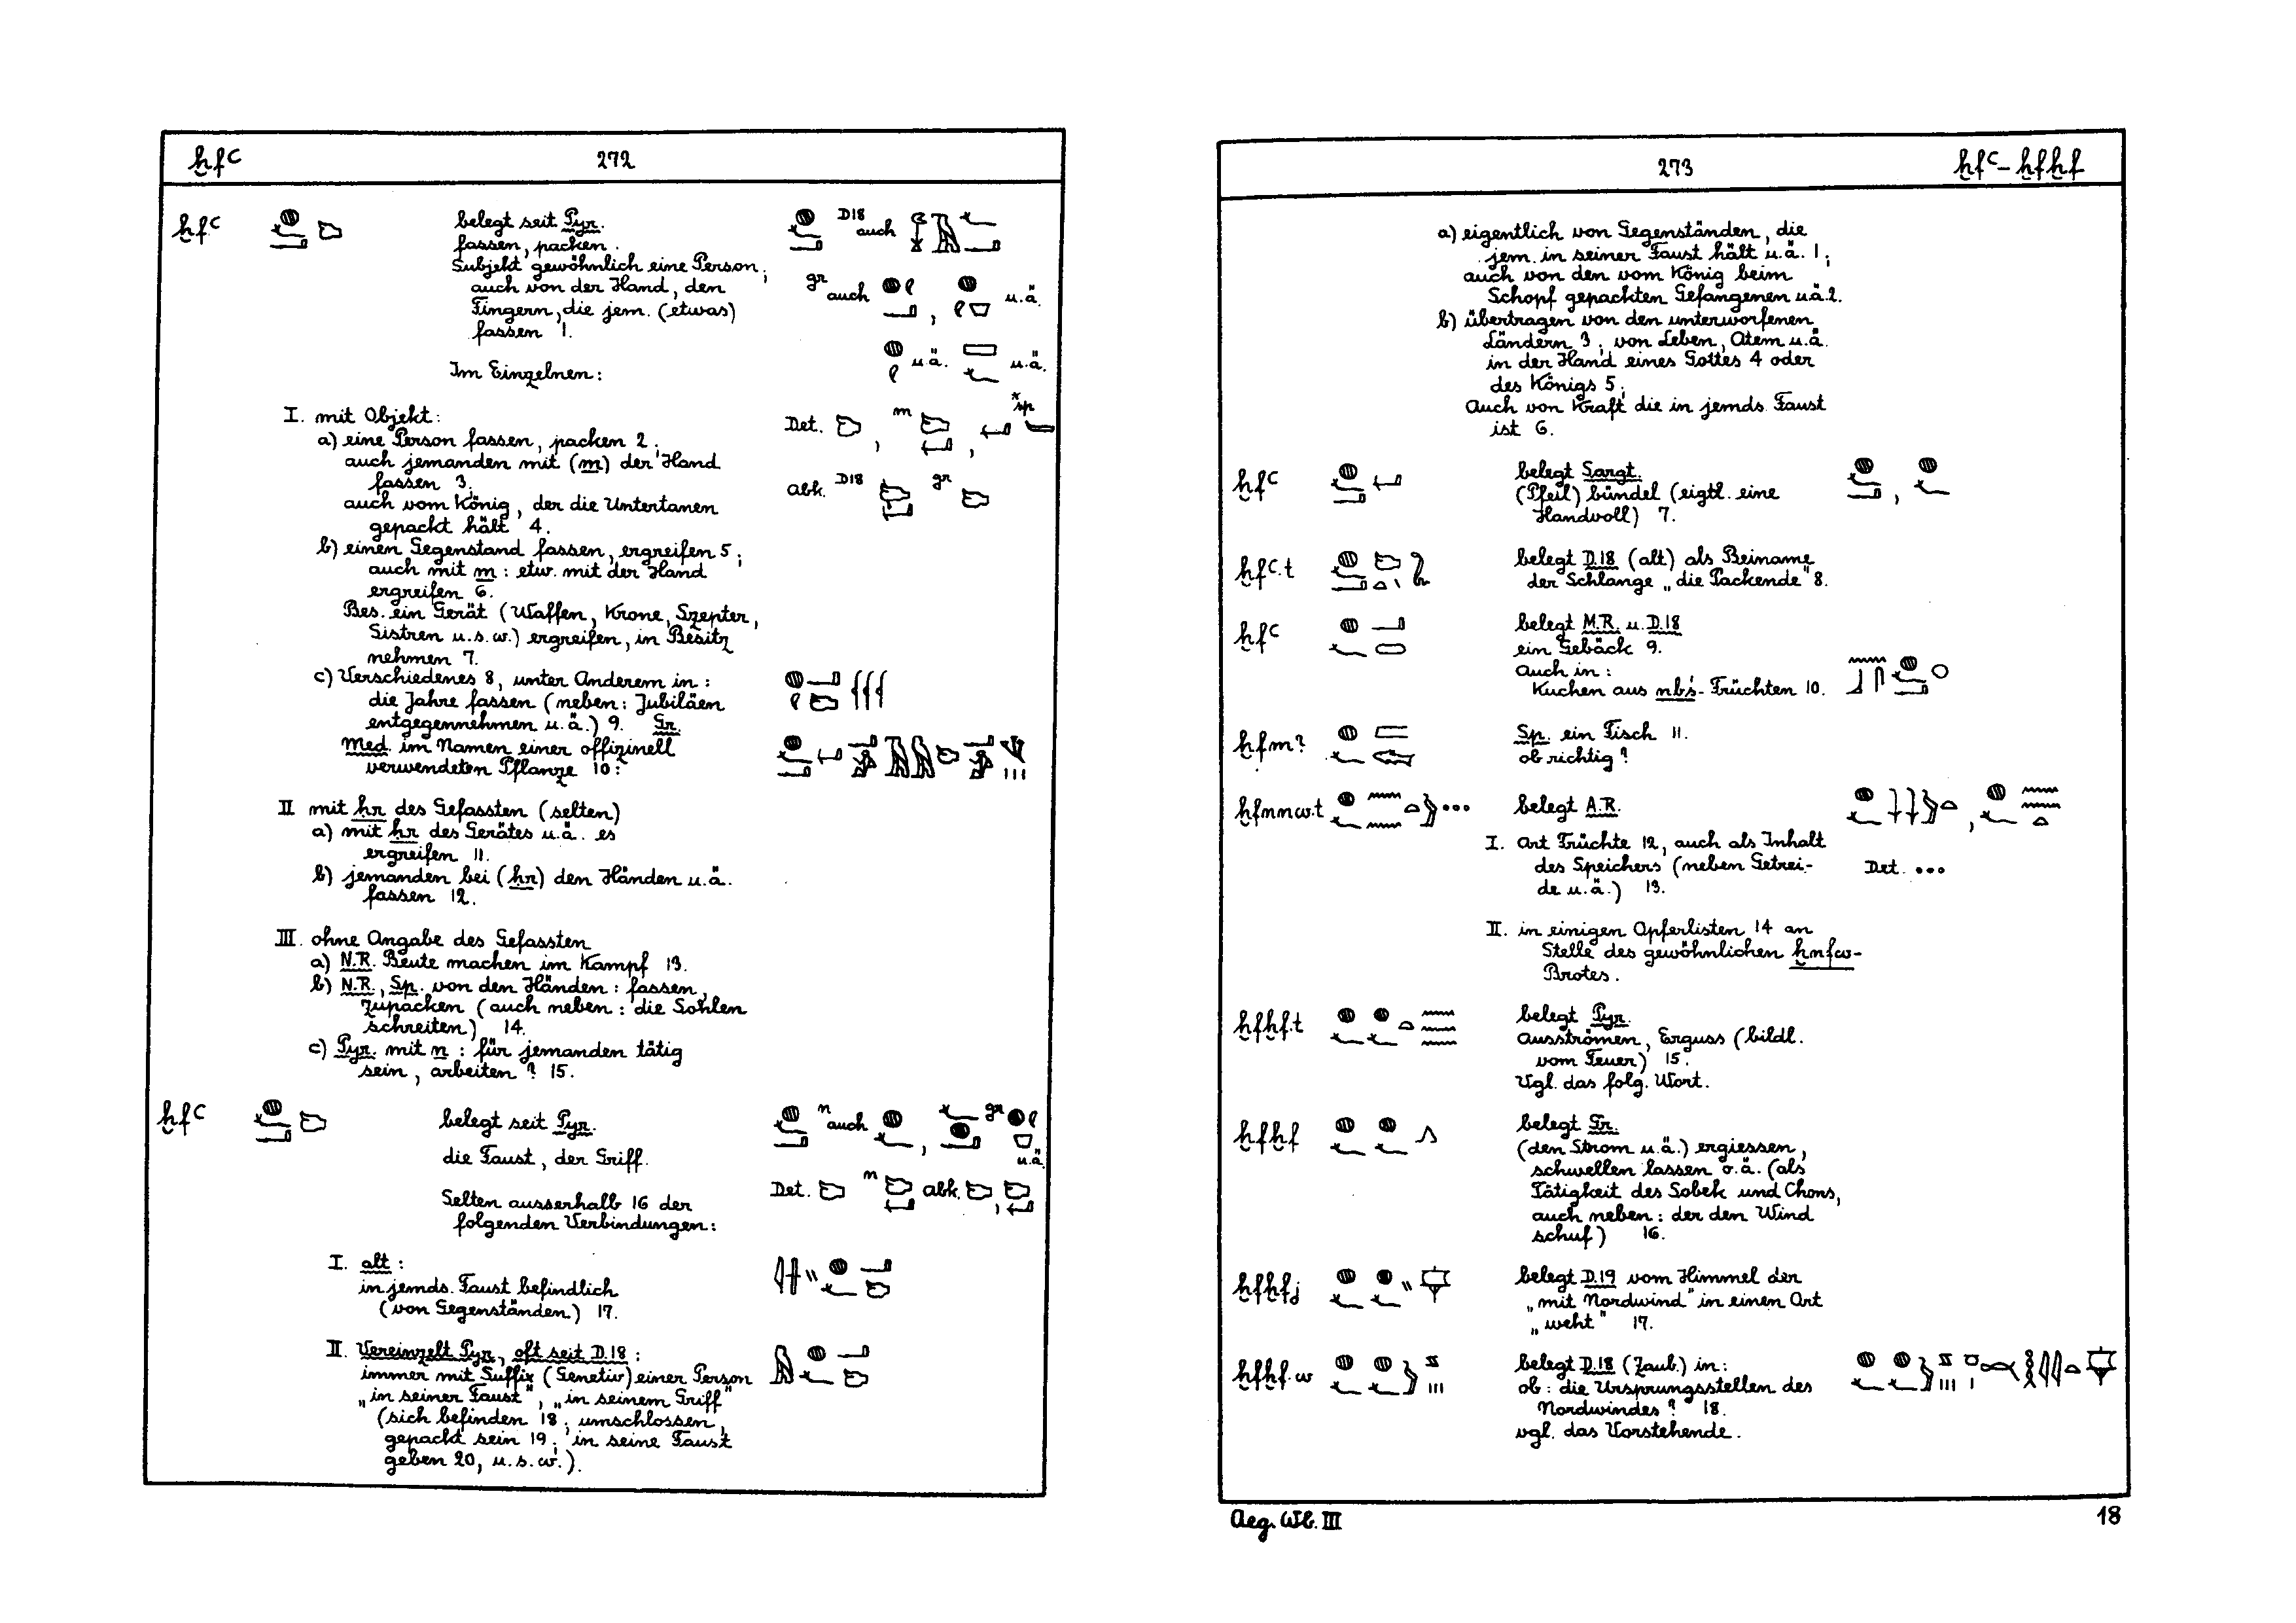 ḫfꜥ 272
ḫfꜥ belegt seit Pyr. D18 auch
fassen, packen.
Subjekt gewöhnlich eine Person;
auch von der Hand, den gr auch , u.ä.
Fingern, die jem. (etwas)
fassen 1.
u.ä. u.ä.
Im Einzelnen:
I. mit Objekt: Det. , m , *sp
a) eine Person fassen, packen 2;
auch jemanden mit (m) der Hand
fassen 3;
abk. D18 gr
auch vom König, der die Untertanen
gepackt hält 4.
b) einen Gegenstand fassen, ergreifen 5;
auch mit m: etw. mit der Hand
ergreifen 6.
Bes. ein Gerät (Waffen, Krone, Szepter,
Sistren u.s.w.) ergreifen, in Besitz
nehmen 7.
c) Verschiedenes 8, unter Anderem in:
die Jahre fassen (neben: Jubiläen
entgegennehmen u.ä.) 9. Gr.
Med. im Namen einer offizinell
verwendeten Pflanze 10:
II mit ḥr des Gefassten (selten)
a) mit ḥr des Gerätes u.ä. es
ergreifen 11.
b) jemanden bei (ḥr) den Händen u.ä.
fassen 12.
III. ohne Angabe des Gefassten
a) N.R. Beute machen im Kampf 13.
b) N.R., Sp. von den Händen: fassen,
zupacken (auch neben: die Sohlen
schreiten) 14.
c) Pyr. mit n: für jemanden tätig
sein, arbeiten? 15.
ḫfꜥ belegt seit Pyr. n auch , gr
die Faust, der Griff. u.ä.
Det. n abk. ,
Selten ausserhalb 16 der
folgenden Verbindungen:
I. alt:
in jemds. Faust befindlich
(von Gegenständen) 17.
II. Vereinzelt Pyr., oft seit D.18:
immer mit Suffix (Genetiv) einer Person
„in seiner Faust", „in seinem Griff"
(sich befinden 18; umschlossen,
gepackt sein 19; in seine Faust
geben 20, u.s.w.).
273 ḫfꜥ - ḫfḫf
a) eigentlich von Gegenständen, die
jem. in seiner Faust hält u.ä. 1;
auch von den vom König beim
Schopf gepackten Gefangenen u.ä. 2.
b) übertragen von den unterworfenen
Ländern 3; von Leben, Atem u.ä.
in der Hand eines Gottes 4 oder
des Königs 5;
Auch von Kraft die in jemds. Faust
ist 6.
ḫfꜥ belegt Sargt. ,
(Pfeil) bündel (eigtl. eine
Handvoll) 7.
ḫfꜥ.t belegt D.18 (alt) als Beiname
der Schlange „die Packende" 8.
ḫfꜥ belegt M.R. u. D.18
ein Gebäck 9.
auch in:
Kuchen aus nbś-Früchten 10.
ḫfm? Sp. ein Fisch 11.
ob richtig?
ḫfnnw.t belegt A.R. ,
I. Art Früchte 12, auch als Inhalt
des Speichers (neben Getrei- Det.
de u.ä.) 13.
II. in einigen Opferlisten 14 an
Stelle des gewöhnlichen ḫnfw-
Brotes.
ḫfḫf.t belegt Pyr.
Ausströmen, Erguss (bildl.
vom Feuer) 15.
Vgl. das folg. Wort.
ḫfḫf belegt Gr.
(den Strom u.ä.) ergiessen,
schwellen lassen o.ä. (als
Tätigkeit des Sobek und Chons,
auch neben: der den Wind
schuf) 16.
ḫfḫfj belegt D.19 vom Himmel der
„mit Nordwind" in einen Ort
„weht" 17.
ḫfḫf.w belegt D.18 (Zaub.) in:
ob: die Ursprungsstellen des
Nordwindes? 18.
vgl. das Vorstehende.
Aeg. Wb. III 18